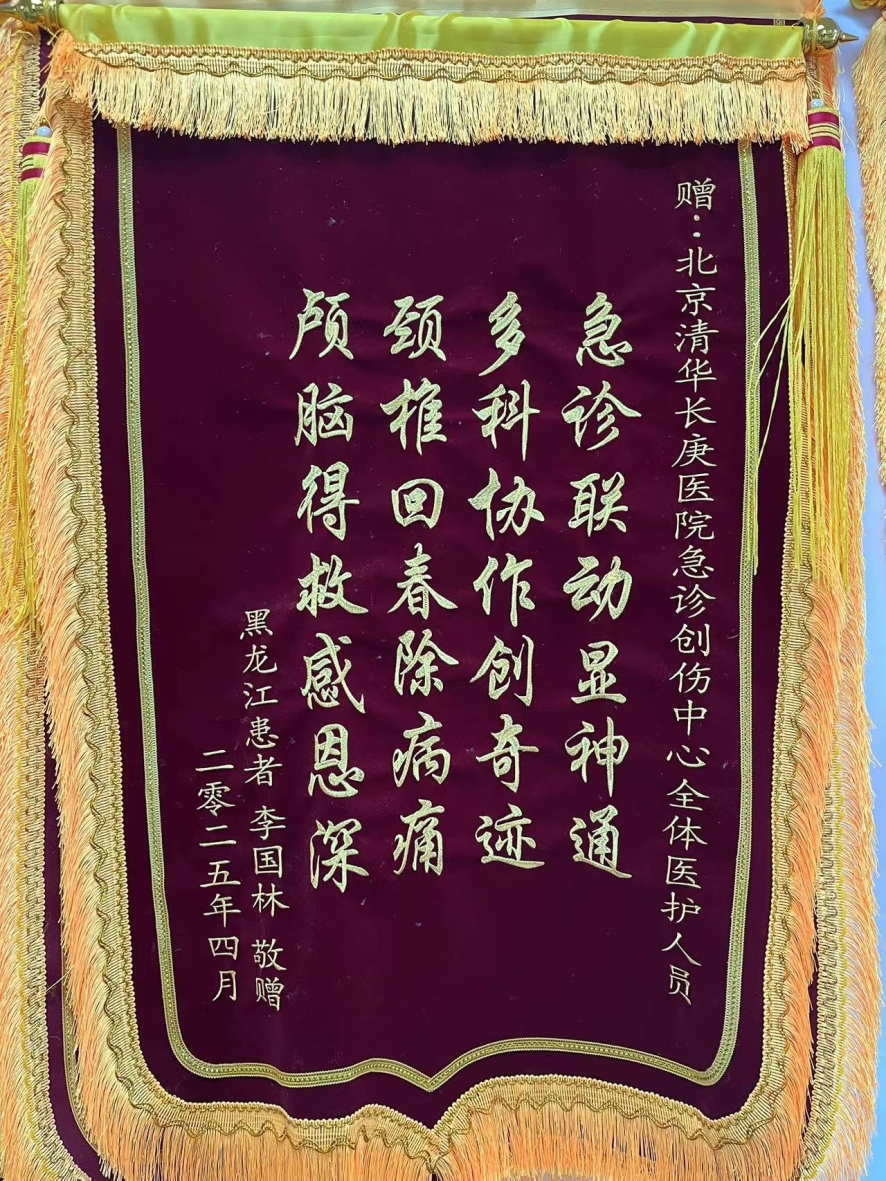 赠：北京清华长庚医院急诊创伤中心全体医护人员
急诊联动显神通
多科协作创奇迹
颈椎回春除病痛
颅脑得救感恩深
黑龙江患者 李国林 敬赠
二零二五年四月